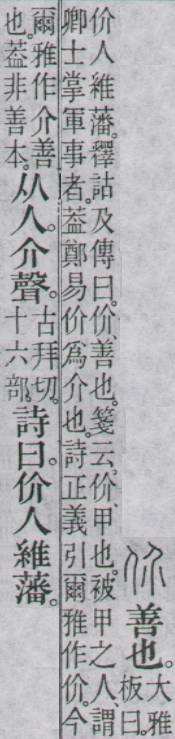 价善也。大雅
板曰。
价人維藩。釋詁及傳曰。价、善也。箋云、价、甲也。被甲之人、謂
卿士掌軍事者。葢鄭易价爲介也。詩正義引爾雅作价。今
爾雅作介善
也。葢非善本。从人。介聲。古拜切。
十六部。詩曰。价人維藩。